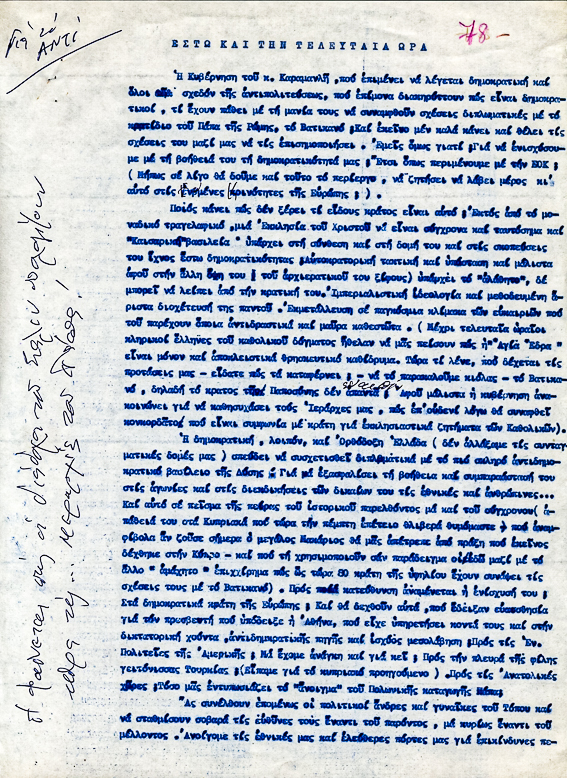 Γιά τό
ΑΝΤΙ
78-
ΕΣΤΩ ΚΑΙ ΤΗΝ ΤΕΛΕΥΤΑΙΑ ΩΡΑ
Ἡ Κυβέρνηση τοῦ κ. Καραμανλῆ ,πού ἐπιμένει νά λέγεται δημοκρατική καί
ὅλοι σχεδόν τῆς ἀντιπολιτεύσεως, πού ἐπίμονα διακηρύττουν πώς εἶναι δημοκρα-
τικοί , τί ἔχουν πάθει μέ τή μανία τους νά συναφθοῦν σχέσεις διπλωματικές μέ τό
κρατίδιο τοῦ Πάπα τῆς Ρώμης, τό Βατικανό ;Καί ἐκεῖνο μέν καλά κάνει καί θέλει τίς
σχέσεις του μαζί μας νά τίς ἐπισημοποιήσει . Ἐμεῖς ὅμως γιατί ;Γιά νά ἐνισχύσου-
με μέ τή βοήθειά του τή δημοκρατικότητά μας ;Ἔτσι ὅπως περιμένουμε μέ τήν ΕΟΚ ;
( Μήπως σέ λίγο θά δοῦμε καί τοῦτο τό περίεργο , νά ζητήσει νά λάβει μέρος κι'
αὐτό στίς ἑνωμένες Κοινότητες τῆς Εὐρώπης ; ) .
Ποιός κάνει πώς δέν ξέρει τί εἴδους κράτος εἶναι αὐτό ;Ἐκτός ἀπό τό μο-
ναδικό τραγελαφικό ,μιά Ἐκκλησία τοῦ Χριστοῦ νά εἶναι σύγχρονα καί ταυτόσημα καί
"Καισαρική βασιλεία" ὑπάρχει στή σύνθεση καί στή δομή του καί στίς σκοπεύσεις
του ἴχνος ἔστω δημοκρατικότητας ;Αὐτοκρατορική τακτική καί ὑπόσταση καί μάλιστα
ἀφοῦ στήν ἄλλη ὄψη του ( τοῦ ἀρχιερατικοῦ του ξίφους) ὑπάρχει τό "ἀλάθητο", δέ
μπορεῖ νά λείπει ἀπό τήν κρατική του. Ἰμπεριαλιστική ἰδεολογία καί μεθοδευμένη ἄ-
ριστα διοχέτευσή της παντοῦ . Ἐκμετάλλευση σέ παγκόσμια κλίμακα τῶν εὐκαιριῶν πού
τοῦ παρέχουν ὅποια ἀντιδραστικά καί μαῦρα καθεστῶτα . ( Μέχρι τελευταῖα ὡραῖοι
κληρικοί Ἕλληνες τοῦ καθολικοῦ δόγματος ἤθελαν νά μᾶς πείσουν πώς ἡ "Ἁγία Ἕδρα"
εἶναι μόνον καί ἀποκλειστικά θρησκευτικό καθίδρυμα. Τώρα τί λένε, πού δέχεται τίς
προτάσεις μας - εἴδατε πώς τά καταφέρνει ; - νά τό παρακαλοῦμε κιόλας - τό Βατικα-
νό , δηλαδή τό κράτος τῆς Παποσύνης δέν ἀπαντᾶ ; Ἀφοῦ μάλιστα ἡ κυβέρνηση ἀνα-
κοινώνει γιά νά καθησυχάσει τούς Ἱεράρχες μας , πώς ἐπ'οὐδενί λόγω θά συναφθεῖ
κονκορδάτο πού εἶναι συμφωνία μέ κράτη γιά ἐκκλησιαστικά ζητήματα τῶν Καθολικῶν).
Ἡ δημοκρατική , λοιπόν, καί Ὀρθόδοξη Ἑλλάδα ( δέν ἀλλάξαμε τίς συνταγ-
ματικές δομές μας ) σπεύδει νά συσχετισθεῖ διπλωματικά μέ τό πιό σκληρό ἀντιδημο-
κρατικό βασίλειο τῆς Δύσης . Γιά νά ἐξασφαλίσει τή βοήθεια καί συμπαράστασή του
στίς ἀγωνίες καί στίς διεκδικήσεις τῶν δικαίων του τίς ἐθνικές καί ἀνθρώπινες...
Καί αὐτό σέ πεῖσμα τῆς πείρας τοῦ ἱστορικοῦ παρελθόντος μά καί τοῦ σύγχρονου( ἀ-
πάθειά του στά Κυπριακά πού τώρα τήν πέμπτη ἐπέτειο θλιβερά θυμόμαστε ) πού ἀναμ-
φίβολα ἄν ζοῦσε σήμερα ὁ μεγάλος Μακάριος θά μᾶς ἀπέτρεπε ἀπό πράξη πού ἐκεῖνος
δέχθηκε στήν Κύπρο - καί πού τή χρησιμοποιοῦν σάν παράδειγμα οἱ μαζί μέ τό
ἄλλο " ἀμάχητο" ἐπιχείρημα πώς ὥς τώρα 80 κράτη τῆς ὑφηλίου ἔχουν συνάψει τίς
σχέσεις τους μέ τό Βατικανό) . Πρός ποιά κατεύθυνση ἀναμένεται ἡ ἐνίσχυσή του ;
Στά δημοκρατικά κράτη τῆς Εὐρώπης ; Καί θά δεχθοῦν αὐτά ,πού ἔδειξαν εὐαισθησία
γιά τόν πρεσβευτή πού ὑπόδειξε ἡ Ἀθήνα, πού εἶχε ὑπηρετήσει κοντά τους καί στήν
δικτατορική χούντα ,ἀντιδημοκρατικῆς πηγῆς καί ἰσχύος μεσολάβηση ;Πρός τίς Ἑν.
Πολιτεῖες τῆς Ἀμερικῆς ; Νά ἔχομε ἀνάγκη καί γιά κεῖ ; Πρός τήν πλευρά τῆς φίλης
γειτόνισσας Τουρκίας ;(Εἴπαμε γιά τό κυπριακό προηγούμενο ) .Πρός τίς Ἀνατολικές
χῶρες ;Τόσο μᾶς ἐντυπωσιάζει τό "ἄνοιγμα" τοῦ Πολωνικῆς καταγωγῆς Πάπα;
Ἄς συνέλθουν ἑπομένως οἱ πολιτικοί ἄνδρες καί γυναῖκες τοῦ Τόπου καί
νά σταθμίσουν σοβαρά τίς εὐθύνες τους ἔναντι τοῦ παρόντος , μά κυρίως ἔναντι τοῦ
μέλλοντος . Ἀνοίγομε τίς ἐθνικές μας καί ἐλεύθερες πόρτες μας γιά ἐπικίνδυνες πε-
Ἤ φαίνεται πώς οἱ διάδοχοι τῶν